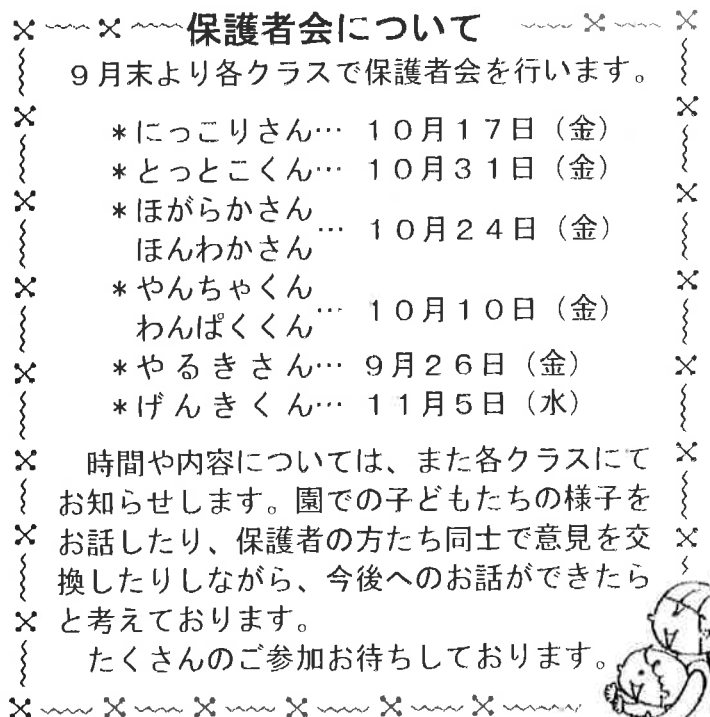 保護者会について
９月末より各クラスで保護者会を行います。
＊にっこりさん… １０月１７日（金）
＊とっとこくん… １０月３１日（金）
＊ほがらかさん
ほんわかさん… １０月２４日（金）
＊やんちゃくん
わんぱくくん… １０月１０日（金）
＊やるきさん… ９月２６日（金）
＊げんきくん… １１月５日（水）
時間や内容については、また各クラスにて
お知らせします。園での子どもたちの様子を
お話したり、保護者の方たち同士で意見を交
換したりしながら、今後へのお話ができたら
と考えております。
たくさんのご参加お待ちしております。